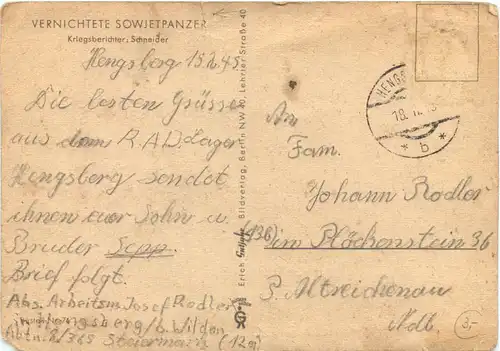 VERNICHTETE SOWJETPANZER
Kriegsberichter: Schneider
Hengsberg 15.2.45.
Die besten Grüsse
aus dem R.A.D. Lager
Hengsberg sendet
ihnen euer Sohn u.
Bruder Sepp.
Brief folgt.
Abs. Arbeitsm. Josef Rodler
Hengsberg/b. Wildon
Abtn. 2/365 Steiermark (12a)
Erich Gutjahr Bildverlag, Berlin NW 40, Lehrter Straße 40
HENGS
18.
* b *
An
Fam.
Johann Rodler
(13b) im Plöckenstein 36
P. Altreichenau
Ndb.
3,-